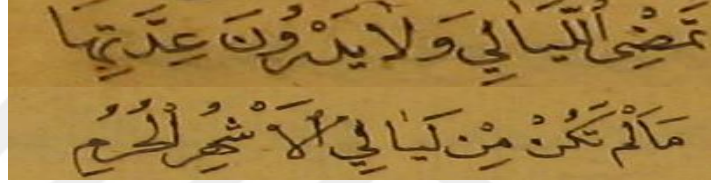 تَمْضِى اللَّيَالِي وَلَا يَدْرُونَ عِدَّتَهَا
مَالَمْ تَكُنْ مِنْ لَيَالِي الْأَشْهُرِ الْحُرُمِ